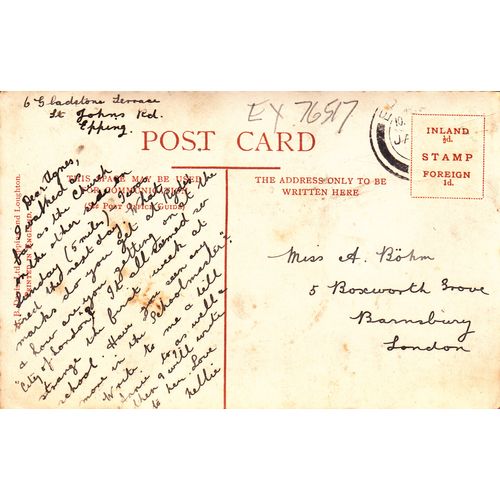 6 Gladstone Terrace
St Johns Rd.
Epping.
EX 76517
POST CARD
THIS SPACE MAY BE USED
FOR COMMUNICATION
(SEE POST OFFICE GUIDE)
THE ADDRESS ONLY TO BE
WRITTEN HERE
INLAND
½d.
STAMP
FOREIGN
1d.
Dear Agnes,
I walked
as far as the Church
on the other side
Sunday (5 miles). I was
tired the next day. What
marks do you get at the
& how are you getting on at
"City of London." It all seemed so
strange the first week at
school. Have you seen any
more in the "Schoolmaster".
Write to me & tell
Annie to as well &
then I will write
to her. Love
Nellie
Miss A. Böhm
5 Boxworth Grove
Barnsbury
London